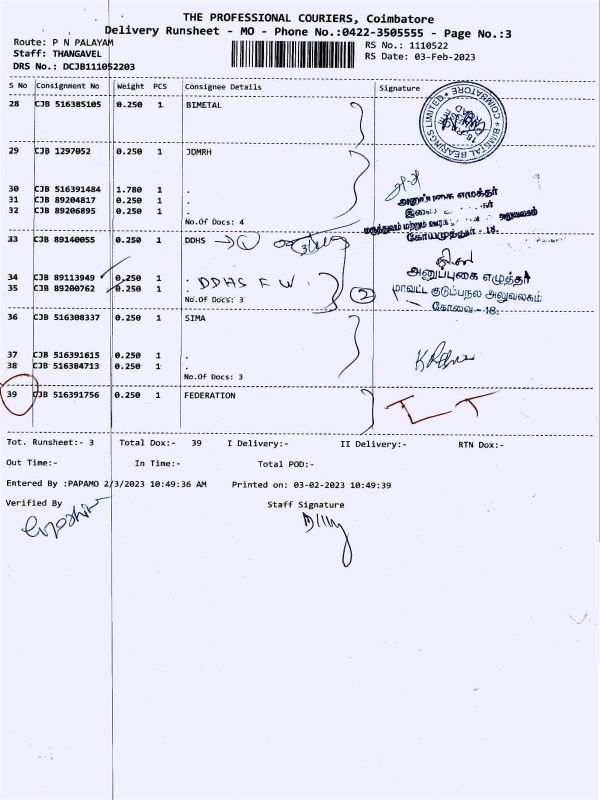 THE PROFESSIONAL COURIERS, Coimbatore
Delivery Runsheet - MO - Phone No.:0422-3505555 - Page No.:3
Route: P N PALAYAM
RS No.: 1110522
Staff: THANGAVEL
RS Date: 03-Feb-2023
DRS No.: DCJB111052203
S No Consignment No Weight PCS Consignee Details Signature
28 CJB 516385105 0.250 1 BIMETAL
BIMETAL BEARINGS LIMITED * COIMBATORE *
29 CJB 1297052 0.250 1 JDMRH
30 CJB 516391484 1.780 1 .
31 CJB 89204817 0.250 1 .
32 CJB 89206895 0.250 1 .
No.Of Docs: 4
அனுப்புகை எழுத்தர்
மருத்துவம் மற்றும் ஊரக அலுவலகம்
கோயமுத்தூர் - 18.
33 CJB 89140055 0.250 1 DDHS → 1
34 CJB 89113949 0.250 1 .
35 CJB 89200762 0.250 1 . DDHS F W.
No.Of Docs: 3
2
அனுப்புகை எழுத்தர்
மாவட்ட குடும்பநல அலுவலகம்
கோவை - 18.
36 CJB 516308337 0.250 1 SIMA
37 CJB 516391615 0.250 1 .
38 CJB 516384713 0.250 1 .
No.Of Docs: 3
39 CJB 516391756 0.250 1 FEDERATION
Tot. Runsheet:- 3 Total Dox:- 39 I Delivery:- II Delivery:- RTN Dox:-
Out Time:- In Time:- Total POD:-
Entered By :PAPAMO 2/3/2023 10:49:36 AM Printed on: 03-02-2023 10:49:39
Verified By
Staff Signature